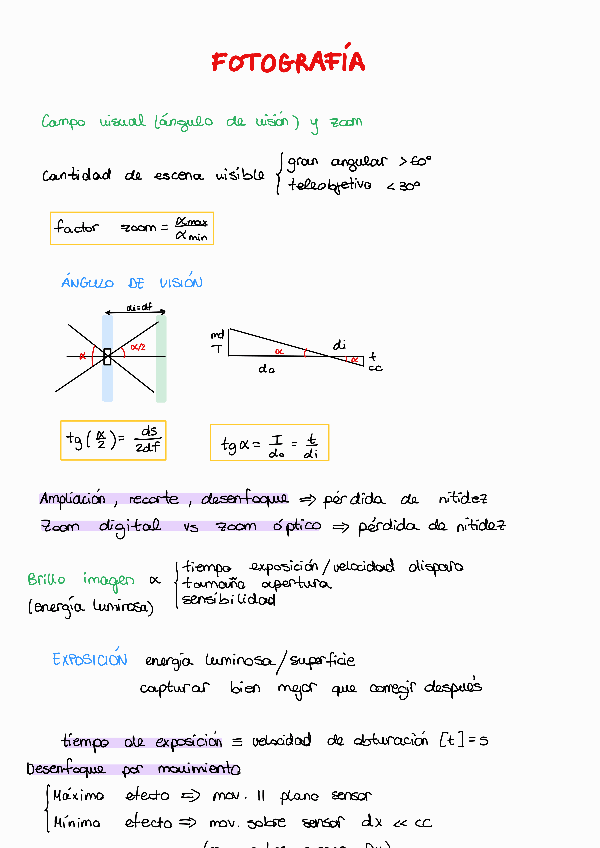 FOTOGRAFÍA
Campo visual (ángulo de visión) y zoom
Cantidad de escena visible { gran angular > 60º
teleobjetivo < 30º
factor zoom = αmax / αmin
ÁNGULO DE VISIÓN
di=df
α α/2
md
T α di α t
do cc
tg(α/2) = ds/2df
tg α = T/do = t/di
Ampliación, recorte, desenfoque ⇒ pérdida de nitidez
Zoom digital vs zoom óptico ⇒ pérdida de nitidez
Brillo imagen ∝ { tiempo exposición/velocidad disparo
tamaño apertura
(energía luminosa) sensibilidad
EXPOSICIÓN energía luminosa/superficie
capturar bien mejor que corregir después
tiempo de exposición ≡ velocidad de obturación [t]=s
Desenfoque por movimiento
{ Máximo efecto ⇒ mov. || plano sensor
Mínimo efecto ⇒ mov. sobre sensor dx << cc